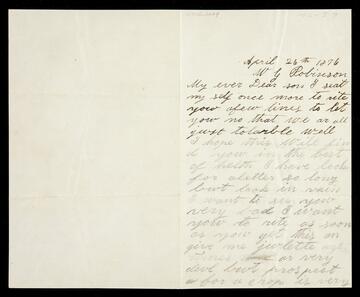 April 26th 1876
W G Robinson
My ever Dear son I seat
my self once more to rite
yow afew lines to let
yow no that we ar all
just tolarble well
I hope this Will fin
d yow in the best
of helth I have look
for aletter so long
bwt look in vain
I want to see yow
very bad I want
yow to rite as soon
as yow get this an
give me
times or very
bwt prospect
for a crop is very